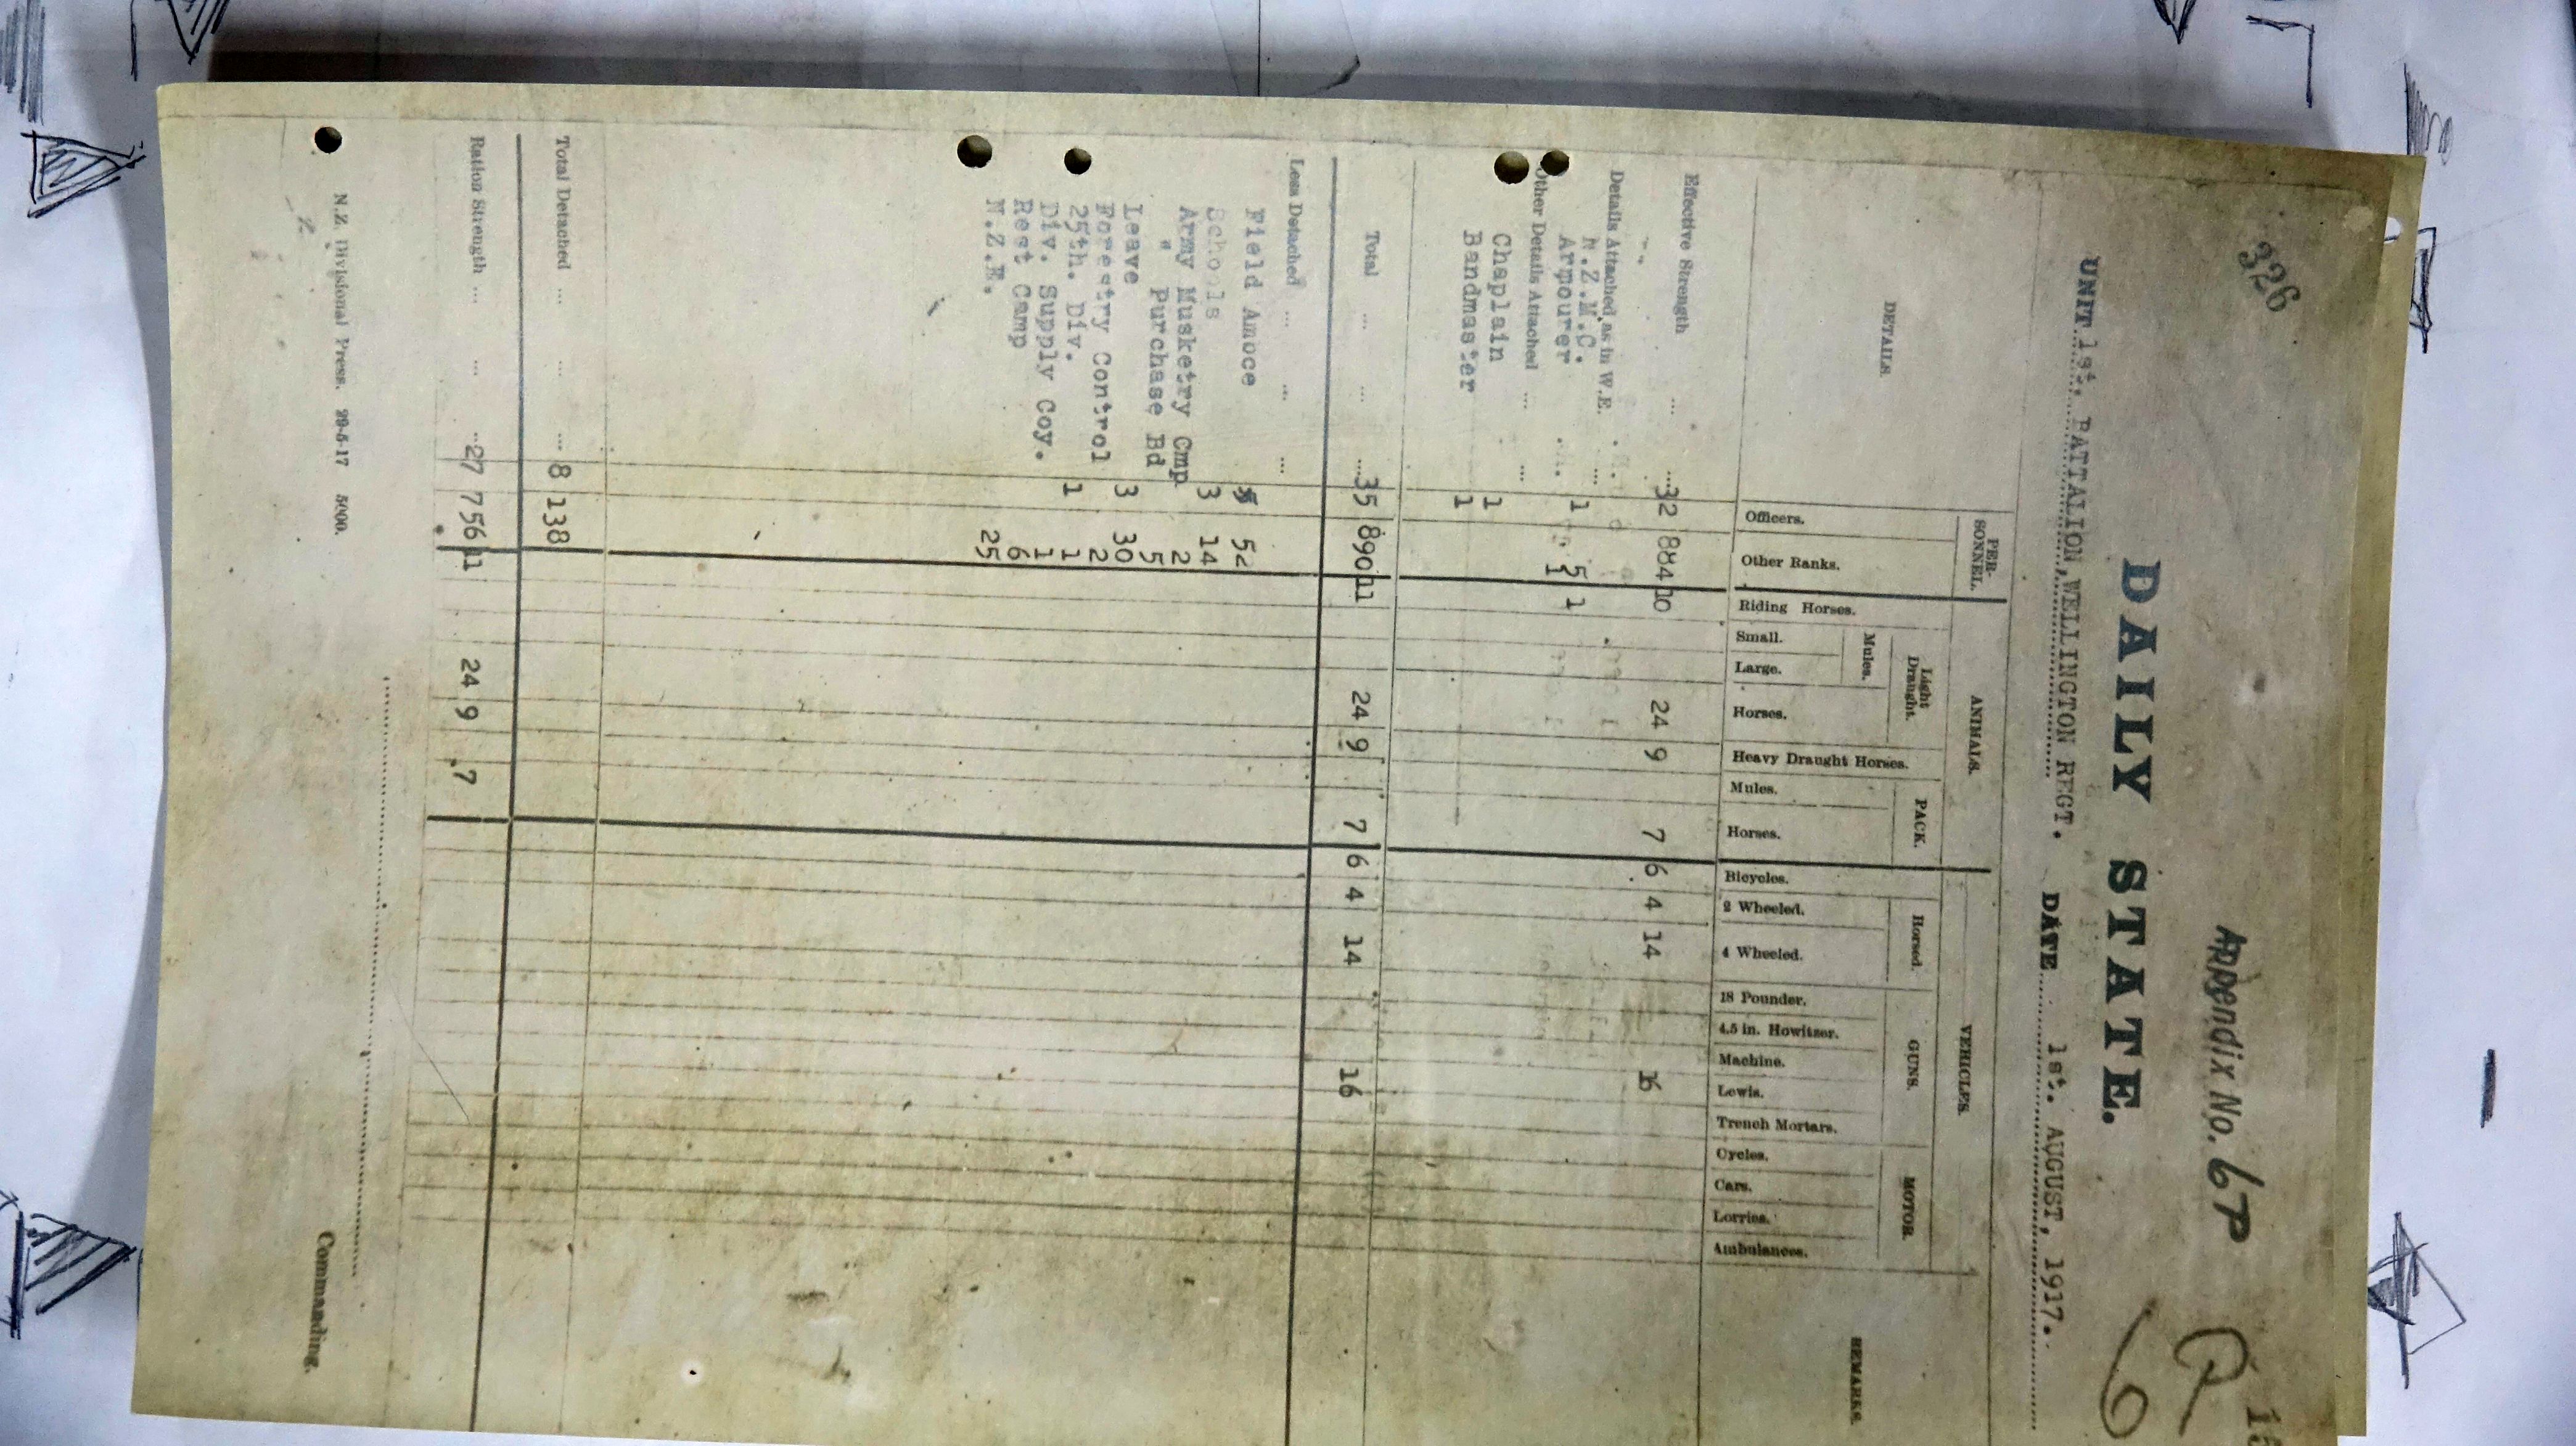 326
Appendix No. 6P
P
6
DAILY STATE.
UNIT 1st. BATTALION, WELLINGTON REGT. DATE 1st. AUGUST, 1917.
DETAILS. PER- SONNEL. ANIMALS. VEHICLES. REMARKS.
Light Draught. PACK. Horsed. GUNS. MOTOR
Mules.
Officers. Other Ranks. Riding Horses. Small. Large. Horses. Heavy Draught Horses. Mules. Horses. Bicycles. 2 Wheeled. 4 Wheeled. 18 Pounder. 4.5 in. Howitzer. Machine. Lewis. Trench Mortars. Cycles. Cars. Lorries. Ambulances.
Effective Strength ... ...32 884 10 24 9 7 6 4 14 16
Details Attached as in W.E. ...
N.Z.M.C. 1 5 1
Armourer 1
Other Details Attached ... ...
Chaplain 1
Bandmaster 1
Total ... ... ...35 890 11 24 9 7 6 4 14 16
Less Detached ... ... ...
Field Amoce 52
Schools 3 14
Army Musketry Cmp 2
" Purchase Bd 5
Leave 3 30
Forestry Control 2
25th. Div. 1 1
Div. Supply Coy. 1
Rest Camp 6
N.Z.E. 25
Total Detached ... ... ... 8 138
Ration Strength ... ... ...27 756 11 24 9 7
Commanding.
N.Z. Divisional Press. 29-5-17 5000.